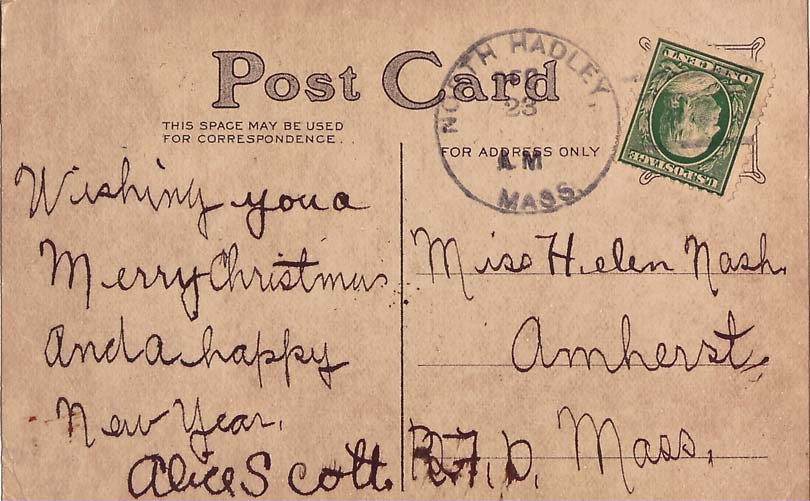 Post Card
THIS SPACE MAY BE USED
FOR CORRESPONDENCE..
FOR ADDRESS ONLY
NORTH HADLEY,
23
A M
MASS.
U.S. POSTAGE
ONE CENT
Wishing you a
Merry Christmas
And a happy
New Year.
Alice Scott.
Miss Helen Nash.
Amherst,
R.F.D. Mass.